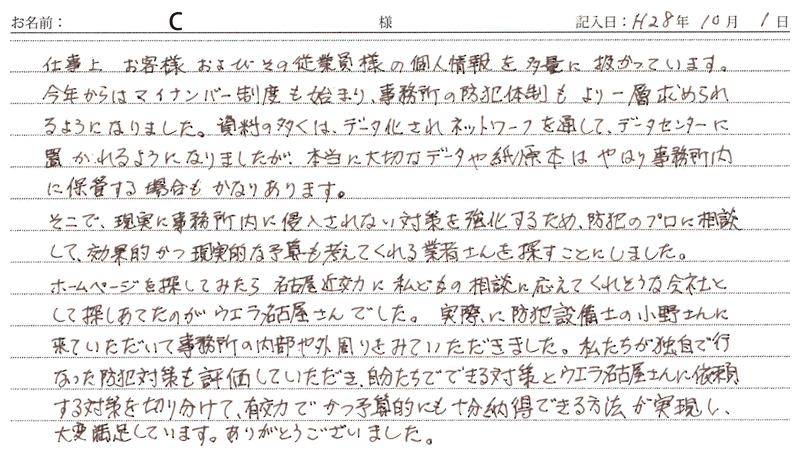 お名前： C 様 記入日：H28年 10月 1日
仕事上 お客様 およびその従業員様の個人情報を多量に扱かっています。
今年からはマイナンバー制度も始まり、事務所の防犯体制もより一層求められ
るようになりました。資料の多くは、データ化されネットワークを通して、データセンターに
置かれるようになりましたが、本当に大切なデータや紙原本はやはり事務所内
に保管する場合もかなりあります。
そこで、現実に事務所内に侵入されない対策を強化するため、防犯のプロに相談
して、効果的かつ現実的な予算も考えてくれる業者さんを探すことにしました。
ホームページを探してみたら 名古屋近交力に私どもの相談に応えてくれそうな会社と
して探しあてたのがウエラ名古屋さんでした。実際に防犯設備士の小野さんに
来ていただいて事務所の内部や外周りをみていただきました。私たちが独自で行
なった防犯対策も評価していただき、自分たちでできる対策とウエラ名古屋さんに依頼
する対策を切り分けて、有効でかつ予算的にも十分納得できる方法が実現し、
大変満足しています。ありがとうございました。